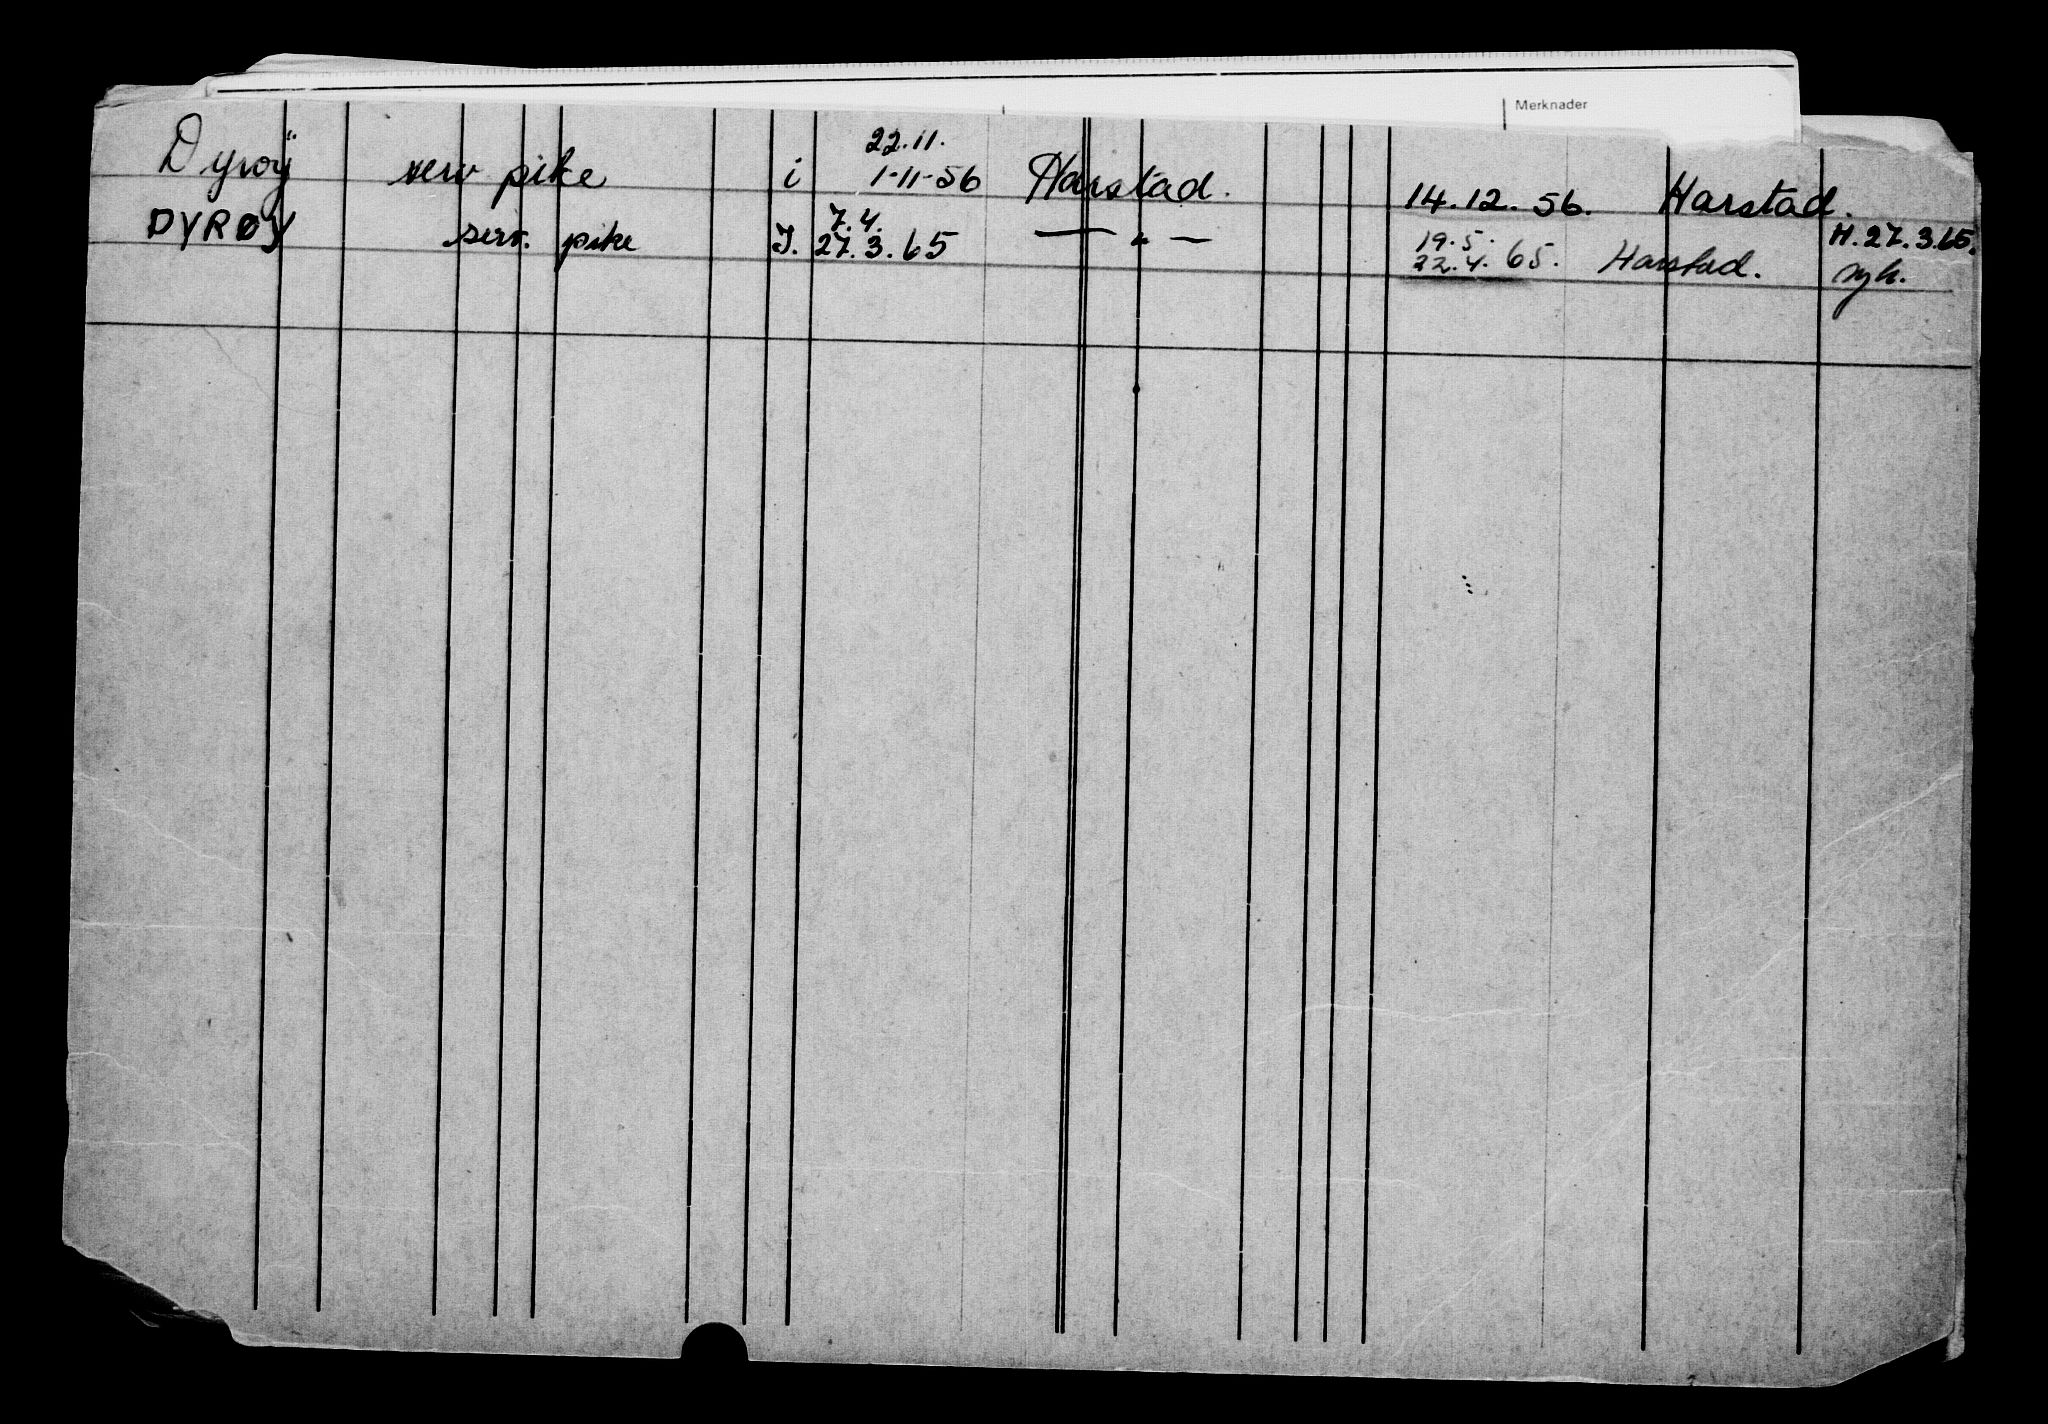 Merknader
22.11.
Dyröy serv pike i 1-11-56 Harstad. 14.12.56. Harstad.
7.4. 19.5.
DYRØY serv. pike I. 27.3.65 — " — 22.4.65. Harstad. H. 27.3.65.
syk.